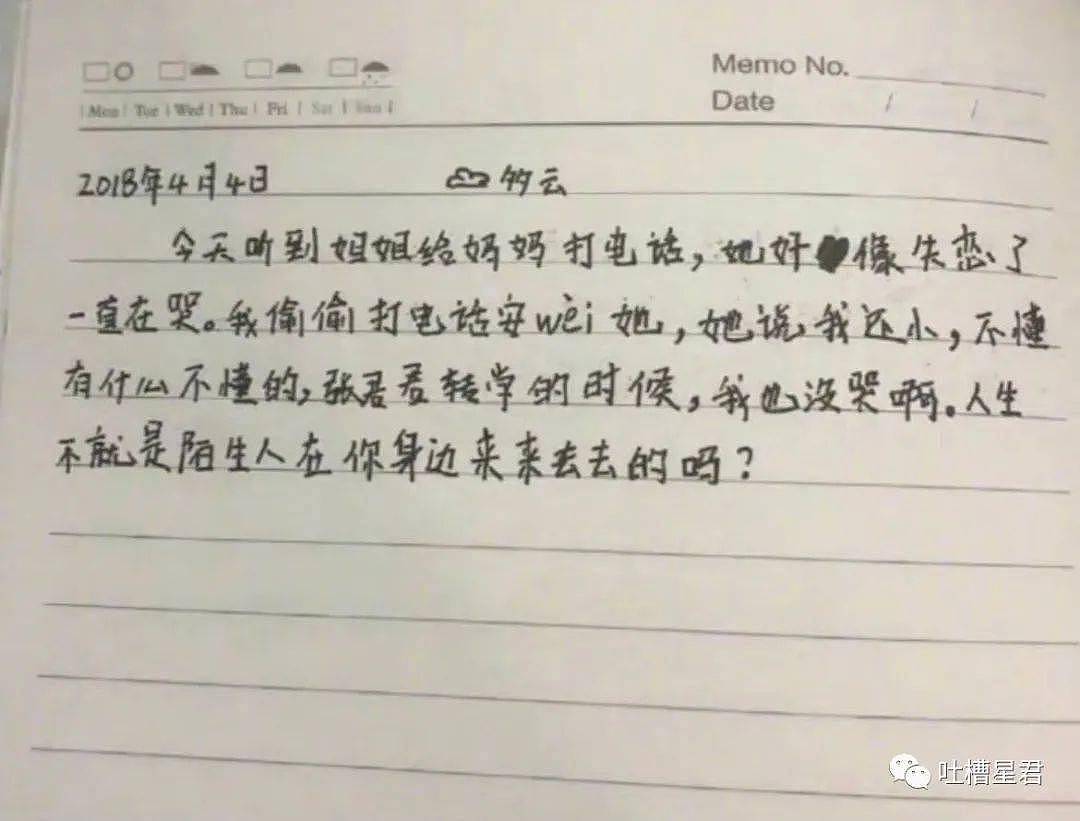 Memo No.
Mon Tue Wed Thu Fri Sat Sun
Date / /
2018年4月4日 多云
今天听到姐姐给妈妈打电话，她好像失恋了
一直在哭。我偷偷打电话安wèi她，她说我还小，不懂
有什么不懂的，张君君转学的时候，我也没哭啊。人生
不就是陌生人在你身边来来去去的吗？
吐槽星君